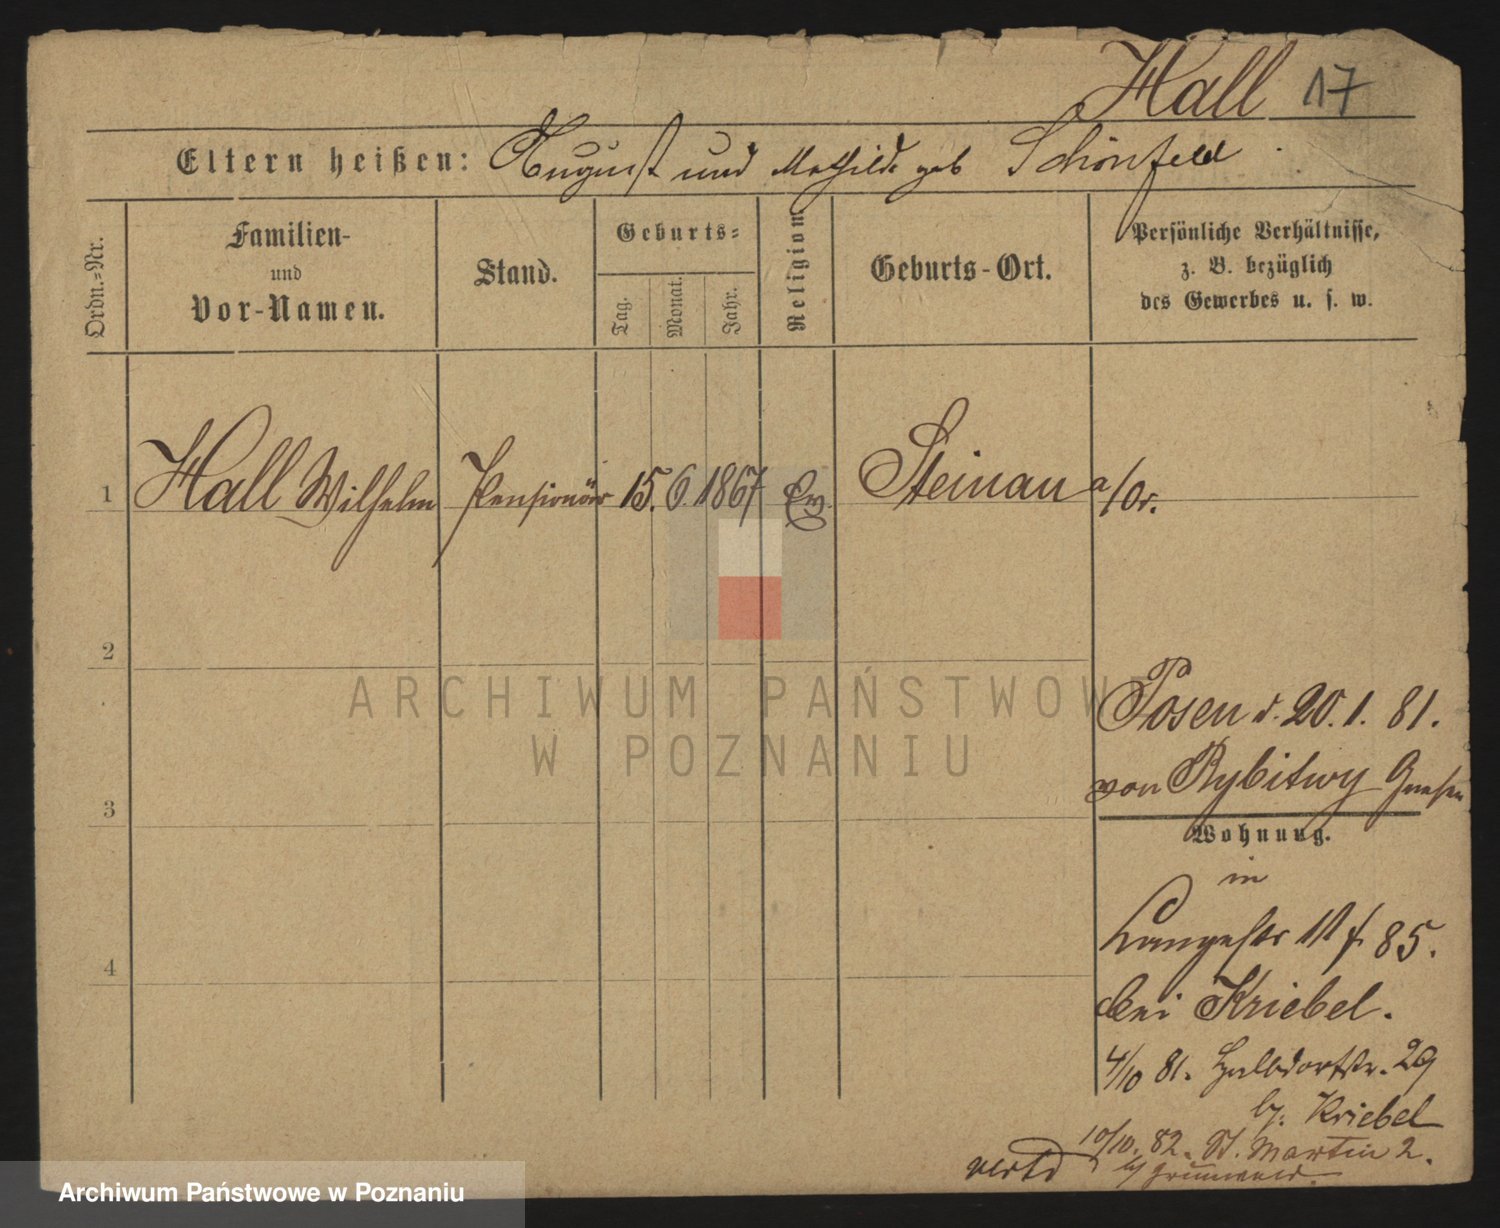 Hall 17
Eltern heißen: August und Mathilde geb Schönfeld
Ordn.-Nr.
Familien-
und
Vor-Namen.
Stand.
Geburts-
Tag.
Monat.
Jahr.
Religion
Geburts-Ort.
Persönliche Verhältnisse,
z. B. bezüglich
des Gewerbes u. s. w.
1 Hall Wilhelm Pensionär 15. 6. 1867 Ev. Steinau a/Or.
2
3
4
Posen d. 20. 1. 81.
von Rybitwy Gnesen
Wohnung.
in
Langestr 11 f. 85.
bei Kriebel.
4/10 81. Halbdorfstr. 29
b. Kriebel
10/10. 82. St. Martin 2.
b/ Grünwald.
ARCHIWUM PAŃSTWOWE
W POZNANIU
Archiwum Państwowe w Poznaniu